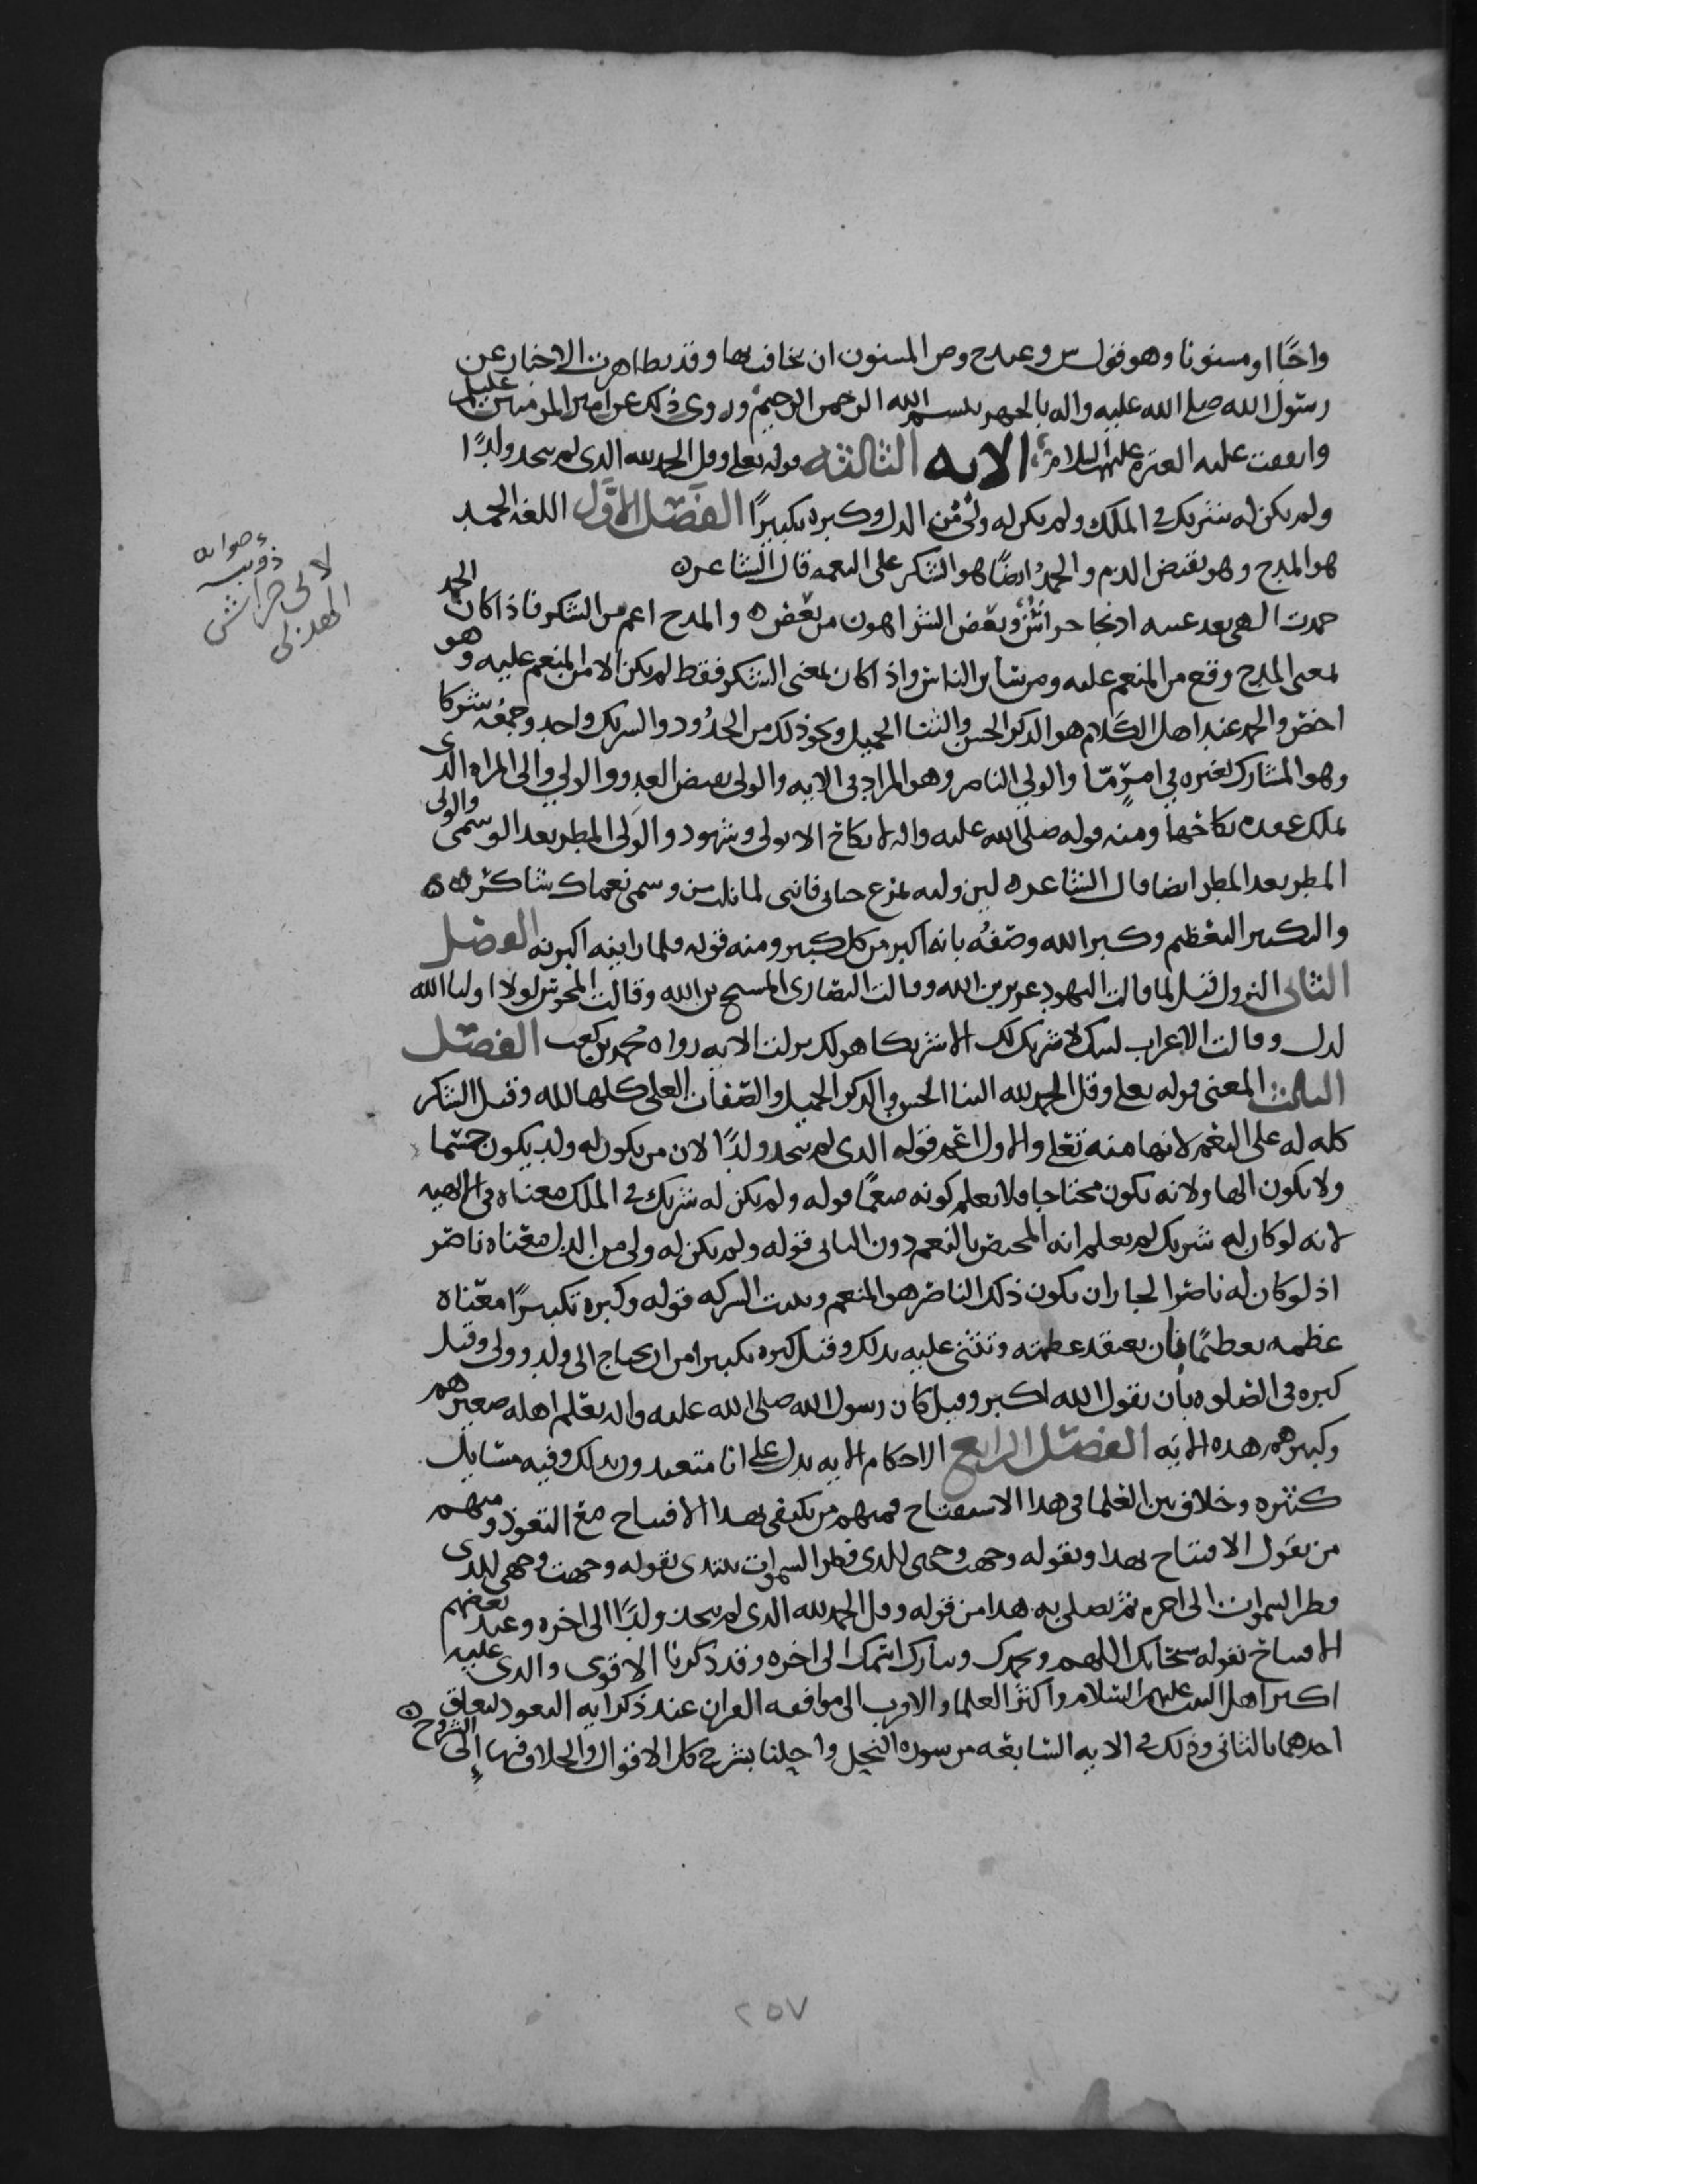 واجبًا او مسنونا وهو قول س وعند ح وص المسنون ان يخافت بها وقد تظاهرت الاخبار عن
رسول الله صلى الله عليه واله بالجهر ببسم الله الرحمن الرحيم وروي ذلك عن امير المومنين عليلم
واتفقت عليه العتره عليهم السلام الايه الثالثه قوله تعلى وقل الحمد لله الذي لم يتخذ ولدًا
ولم يكن له شريك في الملك ولم يكن له ولي من الذل وكبره تكبيرًا الفصل الاول اللغه الحمد
هو المدح وهو نقيض الذم والحمد ايضًا هو الشكر على النعمه قال الشاعر ه
حمدت الهي بعد عروه اذ نجا خراش وبعض الشر اهون من بعض ه والمدح اعم من الشكر فاذا كان الحمد
بمعنى المدح وقع من المنعم عليه ومن سائر الناس واذا كان بمعنى الشكر فقط لم يكن الا من المنعم عليه وهو
اخص والحمد عند اهل الكلام هو الذكر الحسن والثنا الجميل ونحو ذلك من الحدود والشريك واحد وجمعه شركا
وهو المشارك لغيره في امرٍ مّا والولي الناصر وهو المراد في الايه والولي نقيض العدو والولي والي المراه الذي
يملك عقده نكاحها ومنه قوله صلى الله عليه واله لا نكاح الا بولي وشهود والولي المطر بعد الوسمي والولي
المطر بعد المطر ايضا قال الشاعر ه لني وليه تمرع جنابي فانني لما نلت من وسمي نعماك شاكر ه ه
والتكبير التعظيم وكبر الله وصفه بانه اكبر من كل كبير ومنه قوله فلما راينه اكبرنه الفصل
الثاني النزول قيل لما قالت اليهود عزير بن الله وقالت النصارى المسيح بن الله وقالت المجوس لولا اوليا الله
لذل وقالت الاعراب لبيك لا شريك لك الا شريكا هو لك نزلت الايه رواه محمد بن كعب الفصل
الثالث المعنى قوله تعلى وقل الحمد لله الثنا الحسن والذكر الجميل والصفات العلى كلها لله وقيل الشكر
كله له على النعم لانها منه تعلى والاول اعم قوله الذي لم يتخذ ولدًا لان من يكون له ولد يكون جسما
ولا يكون الها ولانه يكون محتاجا فلا يعلم كونه منعمًا قوله ولم يكن له شريك في الملك معناه في الالهيه
لانه لو كان له شريك لم يعلم انه المختص بالنعم دون الثاني قوله ولم يكن له ولي من الذل معناه ناصر
اذ لو كان له ناصر الجاز ان يكون ذلك الناصر هو المنعم وبدت الشركه قوله وكبره تكبيرًا معناه
عظمه تعظيمًا بان يعتقد عظمته وتثني عليه بذلك وقيل كبره تكبيرا من ان يحتاج الى ولد وولي وقيل
كبره في الصلوه بان يقول الله اكبر وقيل كان رسول الله صلى الله عليه واله يعلم اهله صغيرهم
وكبيرهم هذه الايه الفصل الرابع الاحكام الايه يدل على انا متعبدون بذلك وفيه مسايل
كثيره وخلاف بين العلما في هذا الاستفتاح فمنهم من يكتفي بهذا الافتتاح مع التعوذ ومنهم
من يقول الافتتاح بهذا وبقوله وجهت وجهي للذي فطر السموات يبتدي بقوله وجهت وجهي للذي
فطر السموات الى اخره ثم يصلي به هذا من قوله وقل الحمد لله الذي لم يتخذ ولدًا الى اخره وعند بعضهم
الافتتاح بقوله سبحانك اللهم وبحمدك وتبارك اسمك الى اخره وقد ذكرنا الاقوى والذي عليه
اكثر اهل البيت عليهم السلام واكثر العلما والاقرب الى موافقه القران عند ذكر ايه التعوذ لتعلق
احدهما بالثاني وذلك في الايه السابعه من سوره النحل واحلنا بشرح كل الاقوال والخلاف فيها الى الشروح ه
ء صوابه
ذويب
لابي خراش
الهذلي
٢٥٧